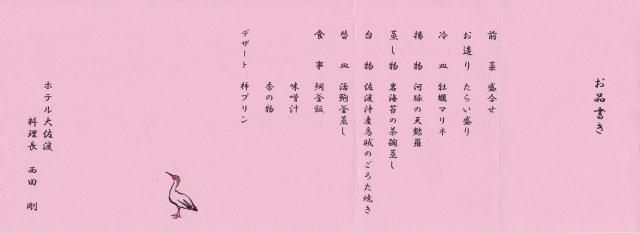 お品書き
前菜 盛合せ
お造り たらい盛り
冷皿 牡蠣マリネ
揚物 河豚の天麩羅
蒸し物 岩海苔の茶碗蒸し
台物 佐渡沖産烏賊のごろた焼き
替皿 活鮑釜蒸し
食事 鯛釜飯
味噌汁
香の物
デザート 柿プリン
ホテル大佐渡
料理長 西田 剛